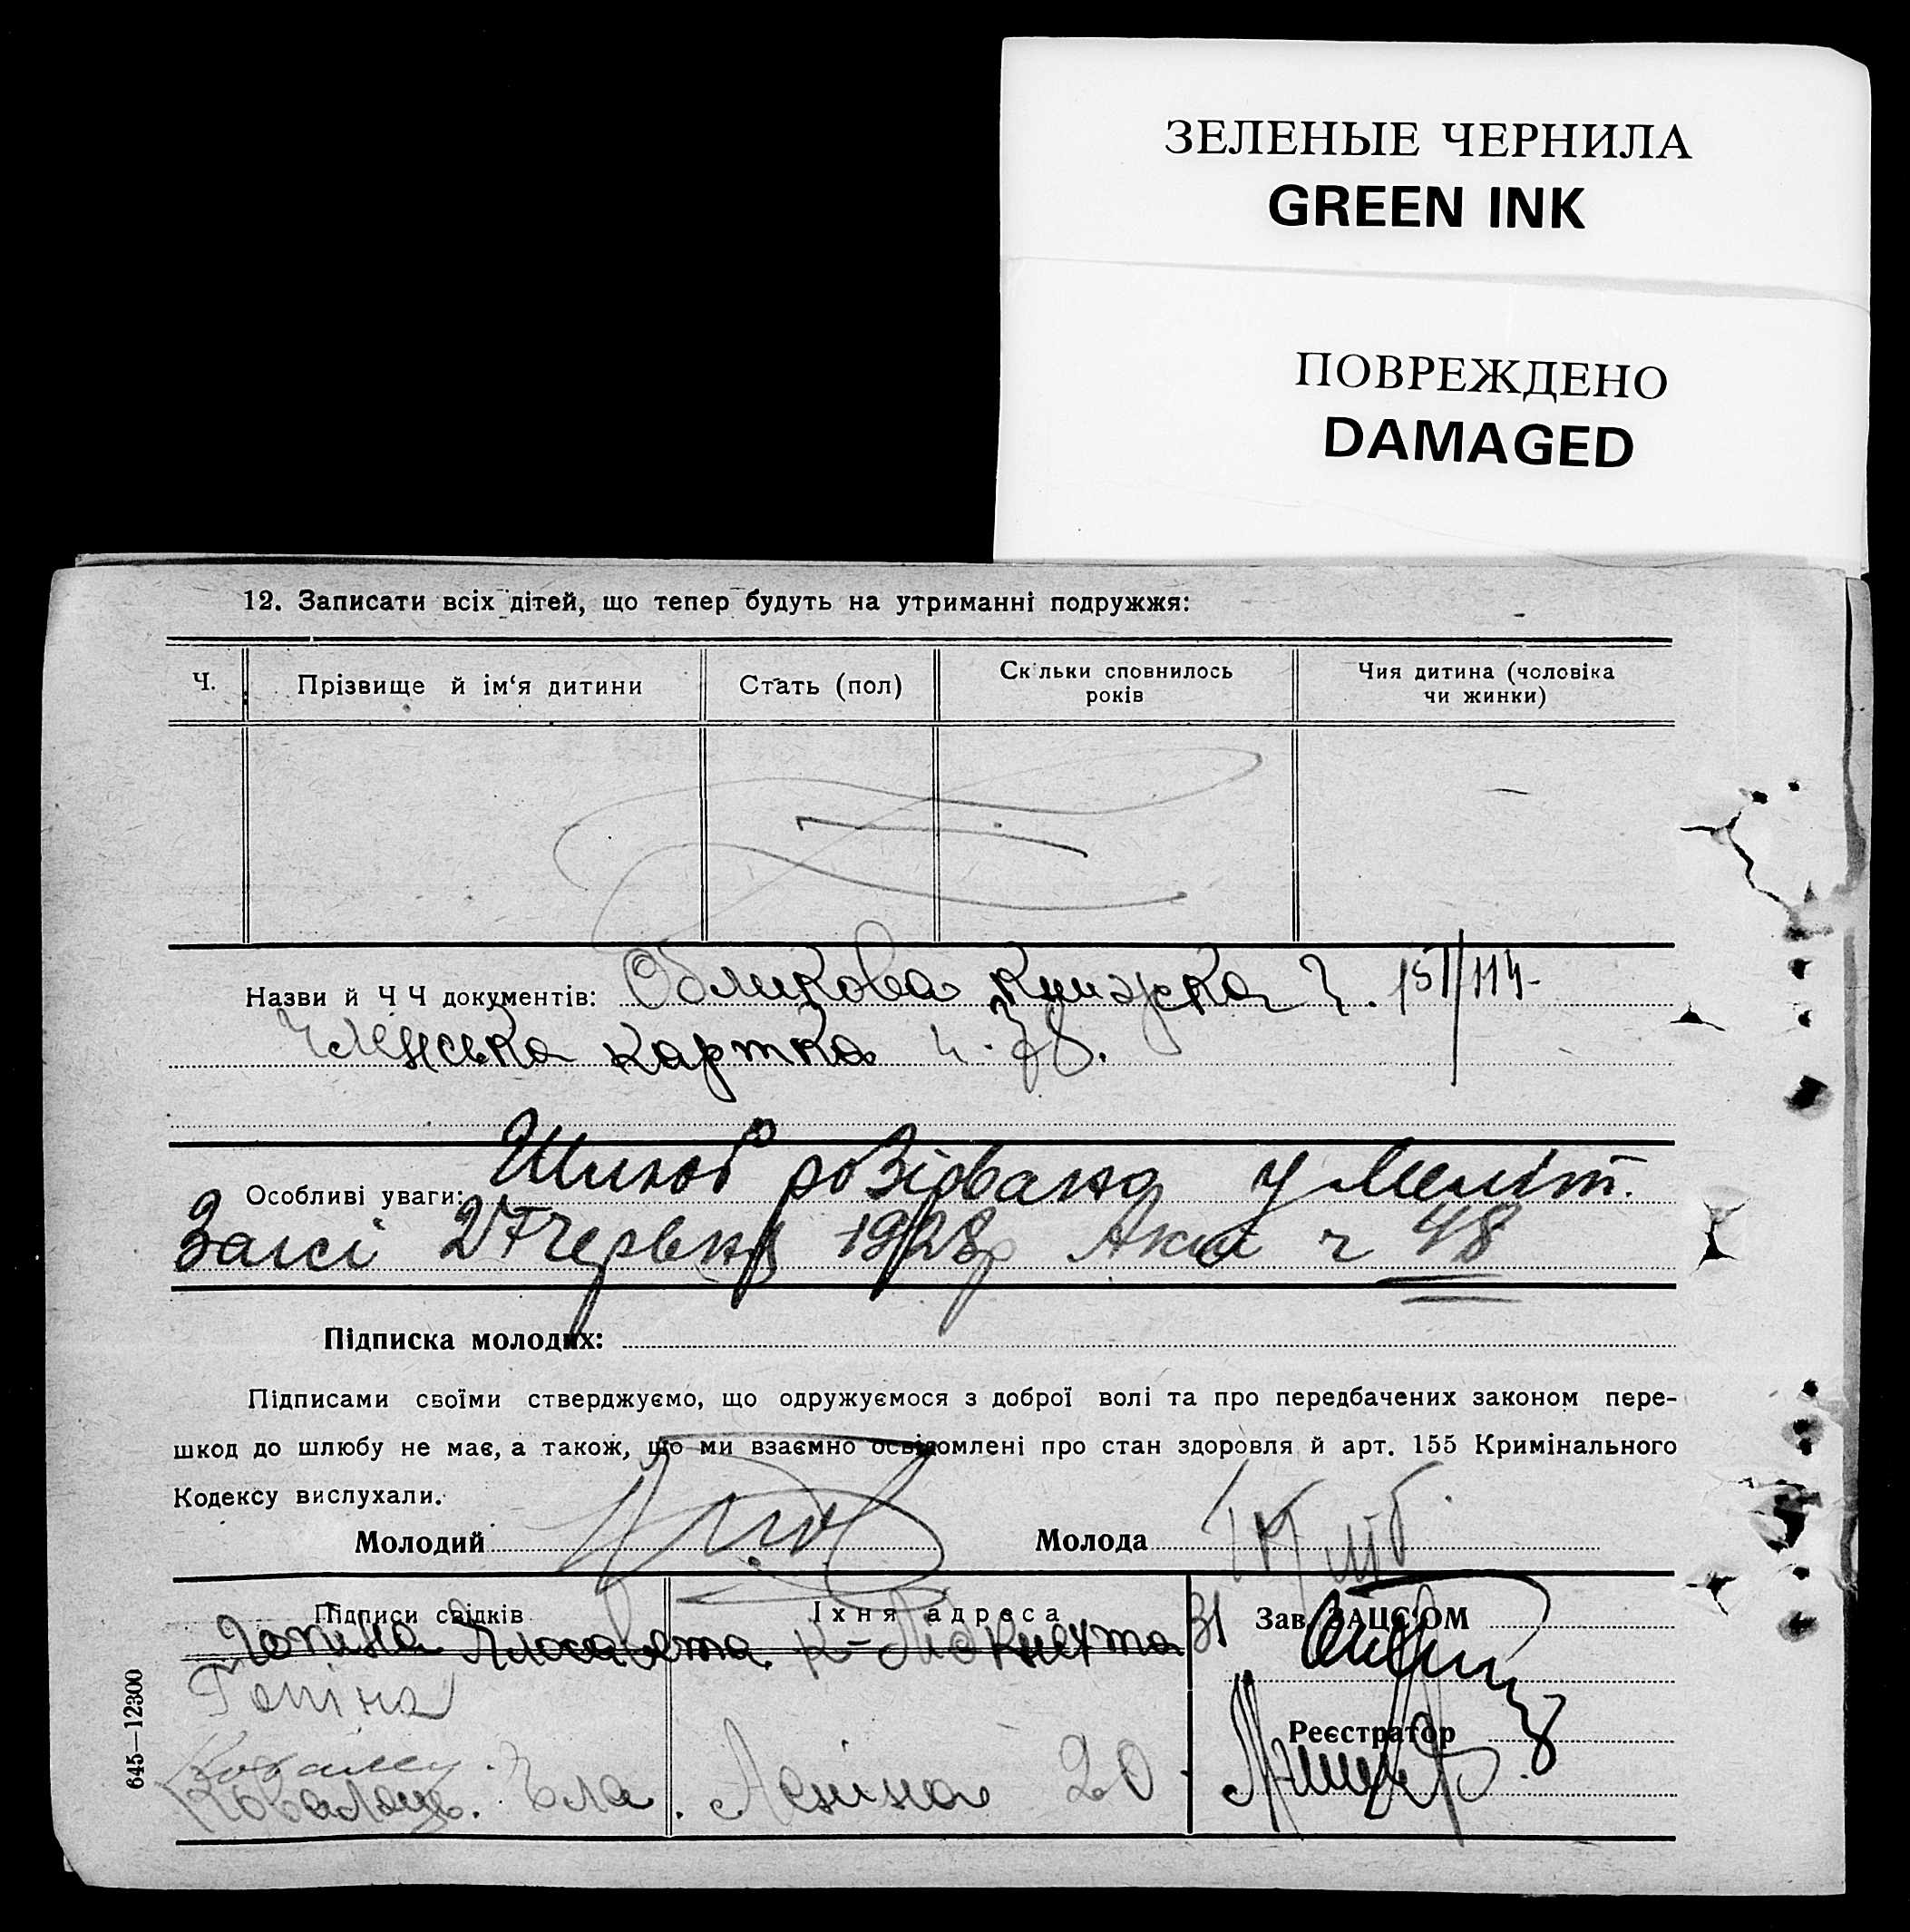 ЗЕЛЕНЫЕ ЧЕРНИЛА
GREEN INK
ПОВРЕЖДЕНО
DAMAGED
12. Записати всіх дітей, що тепер будуть на утриманні подружжя:
Ч. Прізвище й ім‘я дитини Стать (пол) Скільки сповнилось років Чия дитина (чоловіка чи жинки)
Назви й Ч Ч документів: Обликова книжка ч. 151/114-
Членська картка ч. 78.
Особливі уваги: Шлюб розірвано у Меліт.
Загсі 27 червня 1928р Акт ч 48
Підписка молодих:
Підписами своїми стверджуємо, що одружуємося з доброї волі та про передбачених законом пере-
шкод до шлюбу не має, а також, що ми взаємно освідомлені про стан здоровля й арт. 155 Кримінального
Кодексу вислухали.
Молодий Молода
Підписи свідків Їхня адреса Зав. ЗАЦС‘ОМ
Гопіна Єлисавета К-Лібкнехта 31
Гопіна
Реєстратор
Ковалець. Ела. Леніна 20
645—12300